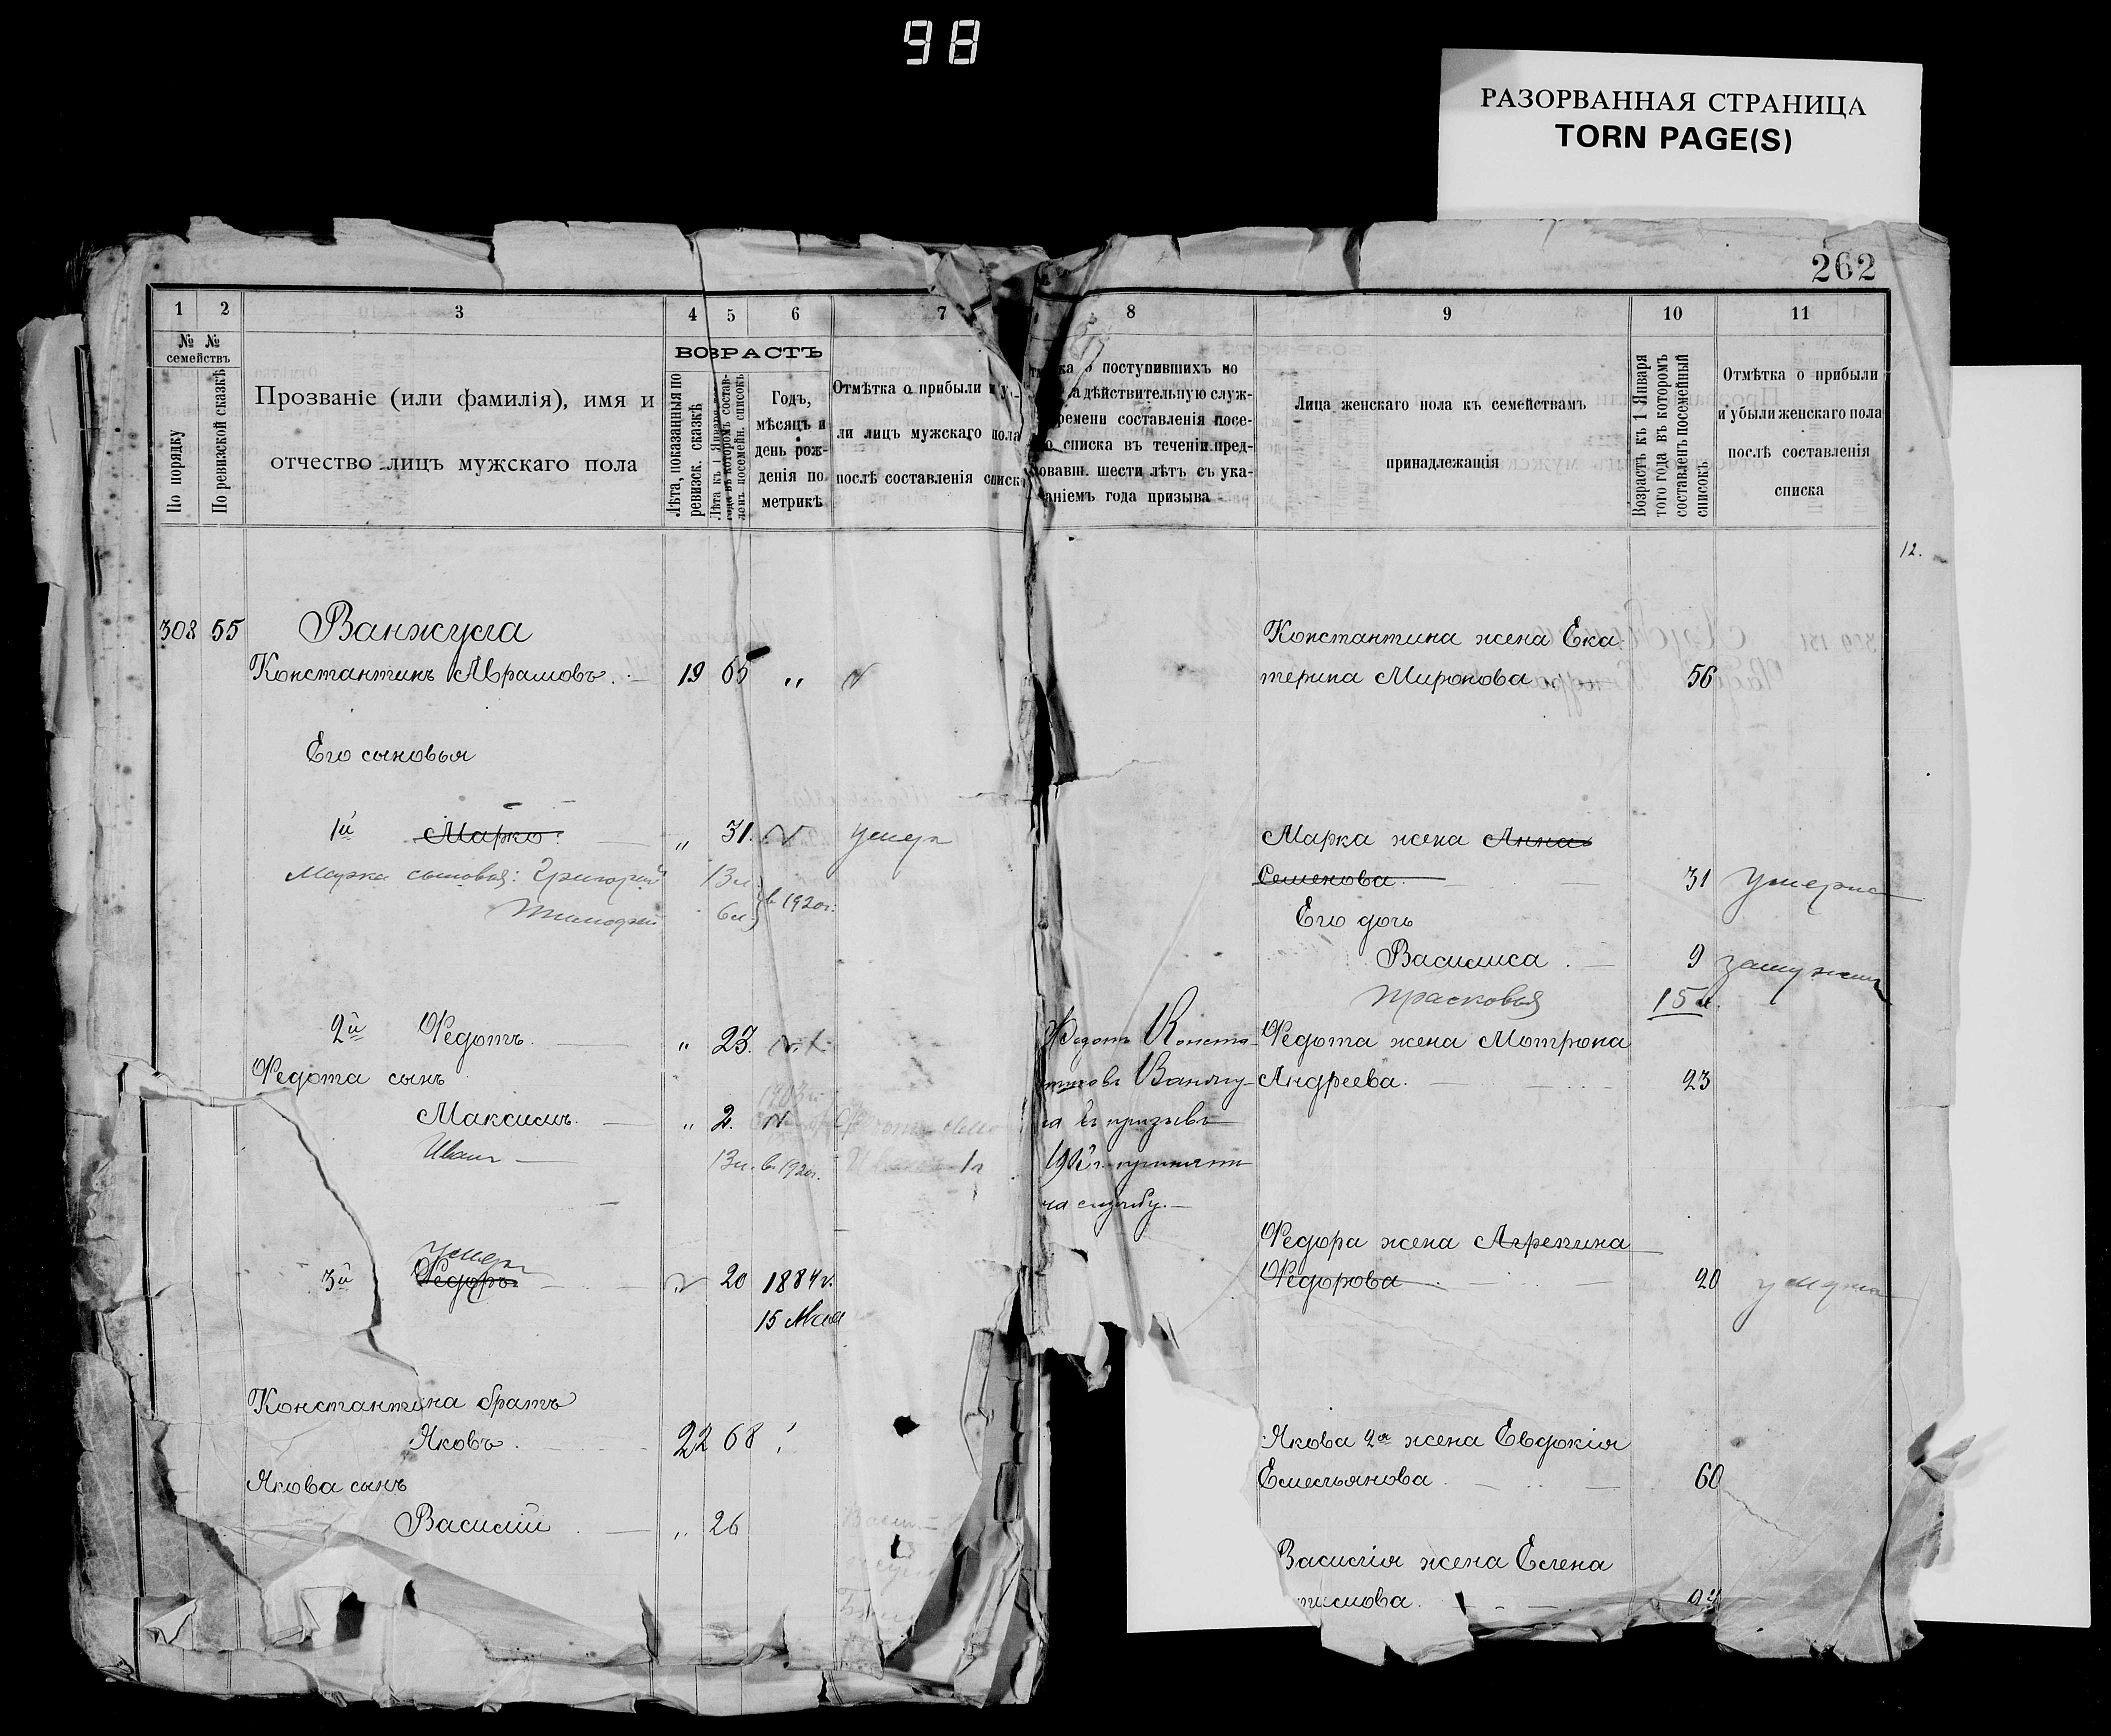 98
РАЗОРВАННАЯ СТРАНИЦА
TORN PAGE(S)
262
1 2 3 4 5 6 7
№ №
семействъ
По порядку
По ревизской сказкѣ
Прозваніе (или фамилія), имя и
отчество лицъ мужскаго пола
ВОЗРАСТЪ
Лѣта, показанныя по
ревизск. сказкѣ
Лѣта къ 1 Января
года въ которомъ состав-
ленъ посемейн. списокъ
Годъ,
мѣсяцъ и
день рож-
денія по
метрикѣ
Отмѣтка о прибыли и у
ли лицъ мужскаго пола
послѣ составленія списк
308 55 Ванжула
Константинъ Аврамовъ. 19 65 „
Его сыновья
1й Марко. „ 31. умеръ
Марка сыновья: Григорій 13л.
Тимофей 6л. в 1920г.
2й Федотъ. „ 23.
Федота сынъ
Максимъ. „ 2.
Иванъ 13л. в 1920г.
умеръ
3й Федоръ 20 1884 г.
15 Мая
Константина братъ
Яковъ. 22 68
Якова сынъ
Василій „ 26
8 9 10 11
ка о поступившихъ по
а дѣйствительную служ-
ремени составленія посе-
о списка въ теченіи пред-
ововавш. шести лѣтъ съ ука-
аніемъ года призыва
Лица женскаго пола къ семействамъ
принадлежащія
Возрастъ къ 1 Января
того года въ которомъ
составленъ посемейный
списокъ
Отмѣтка о прибыли
и убыли женскаго пола
послѣ составленія
списка
12.
Константина жена Ека
терина Миронова 56
Марка жена Анна
Семенова. 31 умерла
Его дочь
Василиса. 9 замужем
Прасковья 15 л.
Федотъ Конста- Федота жена Мотрона
Ванжу- Андреева. 23
ла въ призывъ
принятъ
на службу.
Федора жена Агрепина
Федорова 20 умерла
Якова 2я жена Евдокія
Емельянова 60
Василія жена Елена